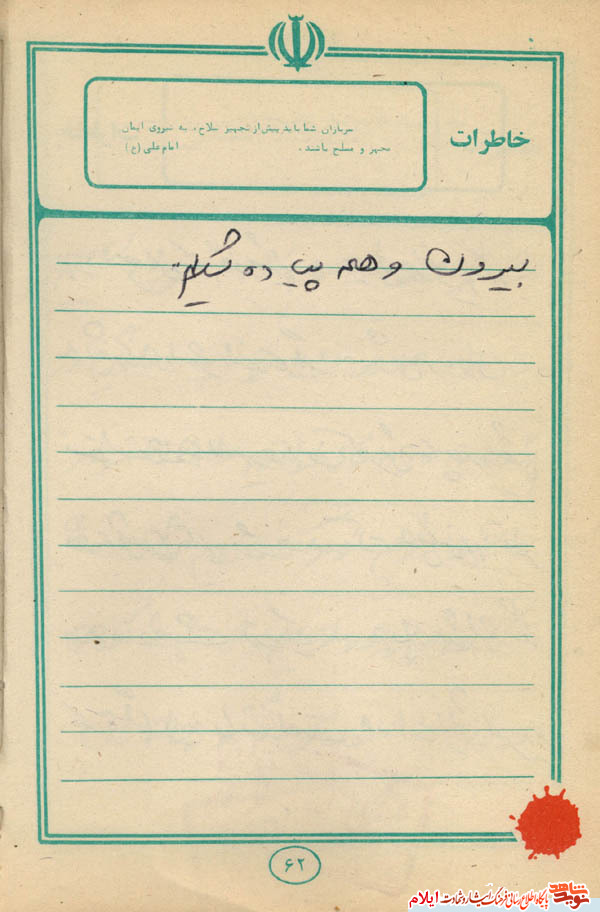 خاطرات
سربازان شما باید پیش از تجهیز سلاح، به نیروی ایمان
مجهز و مسلح باشند. امام علی (ع)
بیرون و هم پیاده شدیم
۶۲
نوید شاهد
پایگاه اطلاع رسانی فرهنگ ایثار و شهادت ایلام